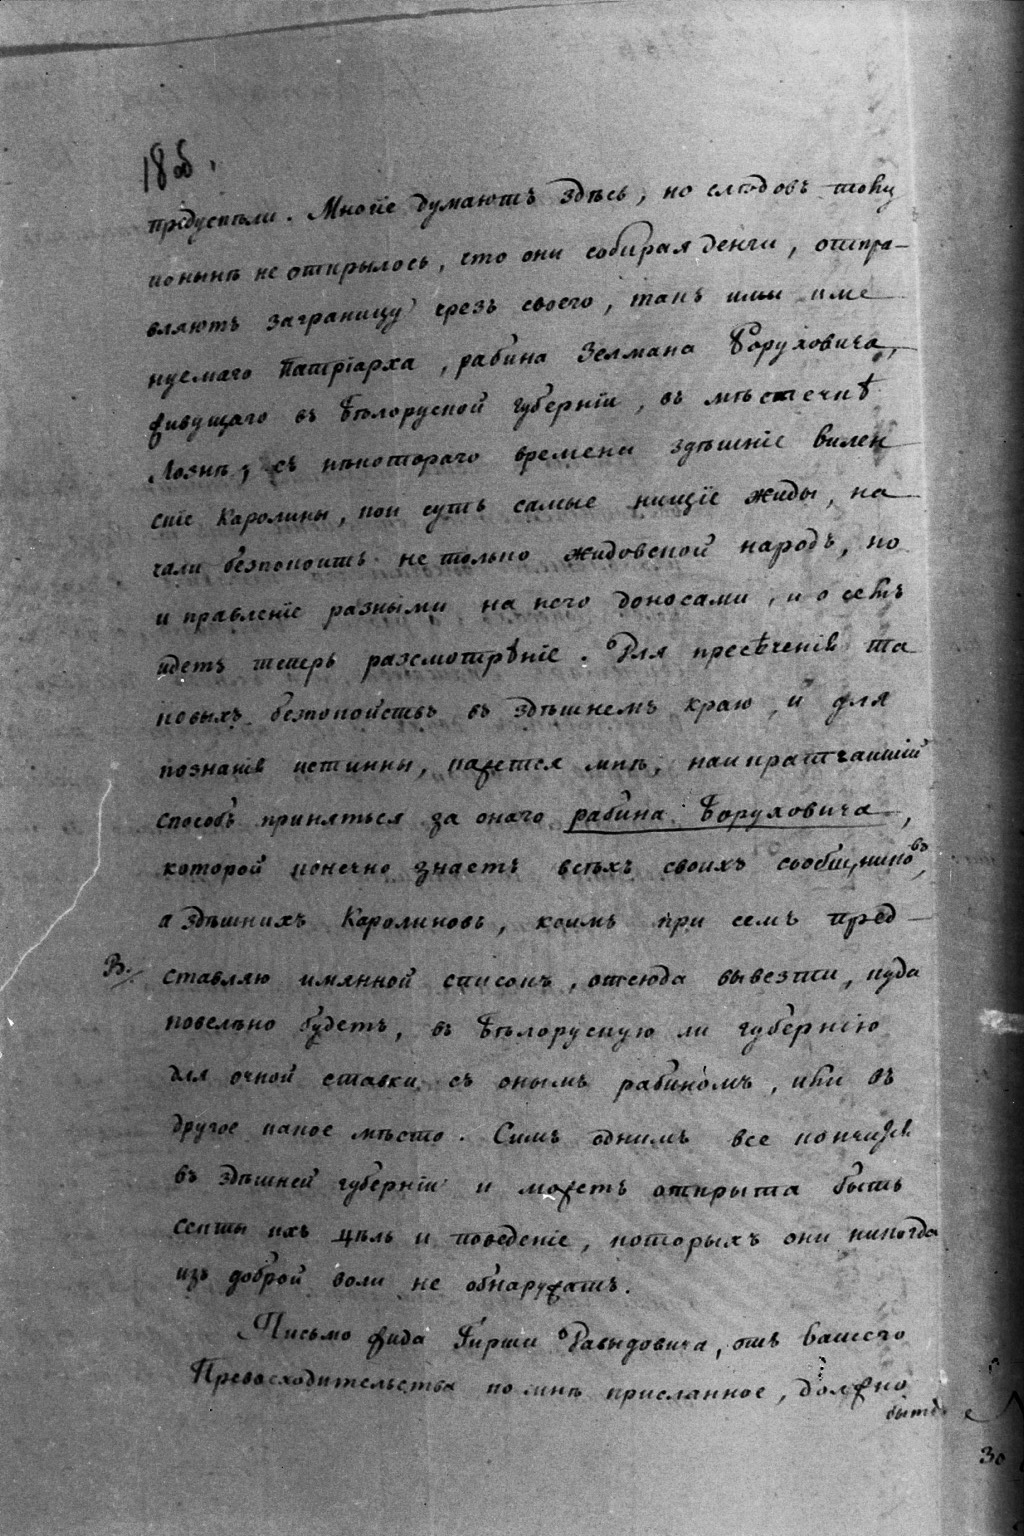 18 об.
предуспѣли. Многіе думаютъ здѣсь, но слѣдовъ тому
понынѣ не открылось, что они собирая денги, отпра-
вляютъ заграницу чрезъ своего, такъ ими име
нуемаго Патріарха, рабина Зелмана Боруховича,
живущаго въ Бѣлоруской губерніи, въ мѣстечкѣ
Лознѣ, съ нѣкотораго времени здѣшніе вилен
скіе Каролины, кои суть самые нищіе жиды, на
чали безпокоить не только жидовской народъ, но
и правленіе разными на него доносами, и о семъ
идетъ теперь разсмотрѣніе. Для пресѣченія та
ковыхъ безпокойствъ въ здѣшнемъ краю, и для
познанія истинны, кажется мнѣ, наикратчайшій
способъ приняться за онаго рабина Боруховича,
которой конечно знаетъ всѣхъ своихъ сообщниковъ,
а здѣшнихъ Каролиновъ, коимъ при семъ пред-
В. ставляю имянной списокъ, отсюда вывезти, куда
повелѣно будетъ, въ Бѣлорускую ли губернію
для очной ставки съ онымъ рабиномъ, или въ
другое какое мѣсто. Симъ однимъ все кончится
въ здѣшней губерніи и можетъ открыта быть
секты ихъ цѣль и поведеніе, которыхъ они никогда
изъ доброй воли не обнаружатъ.
Письмо жида Гирши Давыдовича, отъ Вашего
Превосходительства ко мнѣ присланное, должно
быть
30